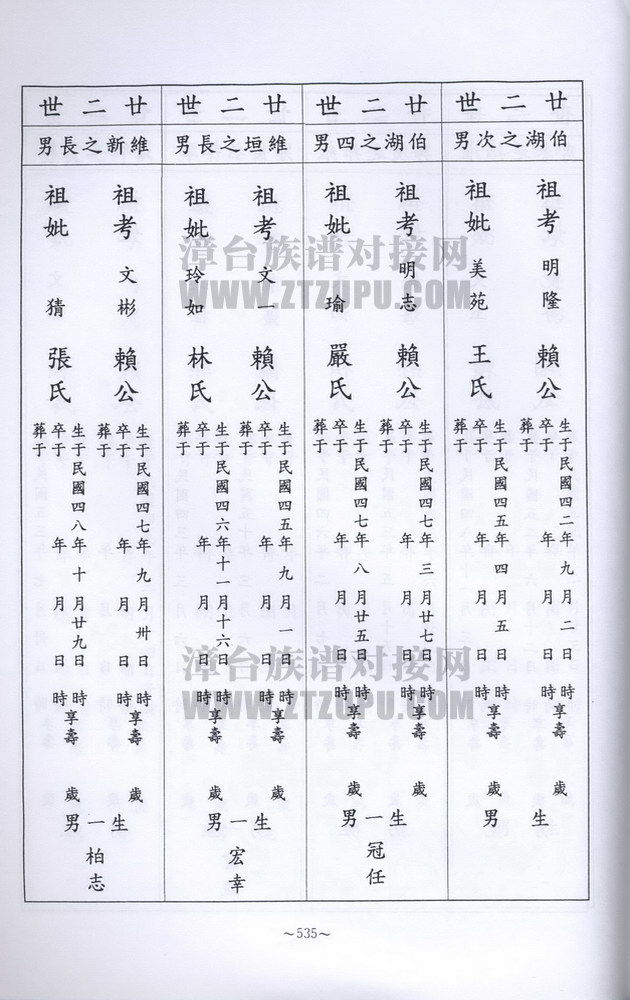 廿二世
伯湖之次男
祖考 明隆 賴公
生于民國四二年九月二日 時享壽 歲
卒于 年 月 日 時
祖妣 美苑 王氏
生于民國四五年四月五日 時享壽
卒于 年 月 日 時
葬于
生 男
廿二世
伯湖之四男
祖考 明志 賴公
生于民國四七年三月廿七日 時享壽 歲
卒于 年 月 日 時
葬于
祖妣 瑜 嚴氏
生于民國四七年八月廿五日 時享壽 歲
卒于 年 月 日 時
葬于
生一男
冠任
廿二世
維垣之長男
祖考 文一 賴公
生于民國四五年九月一日 時享壽 歲
卒于 年 月 日 時
葬于
祖妣 玲如 林氏
生于民國四六年十一月十六日 時享壽 歲
卒于 年 月 日 時
葬于
生一男
宏幸
廿二世
維新之長男
祖考 文彬 賴公
生于民國四七年九月卅日 時享壽 歲
卒于 年 月 日 時
祖妣 文猜 張氏
生于民國四八年十月廿九日 時享壽 歲
卒于 年 月 日 時
葬于
生一男
柏志
~535~
漳台族谱对接网
WWW.ZTZUPU.COM
漳台族谱对接网
WWW.ZTZUPU.COM